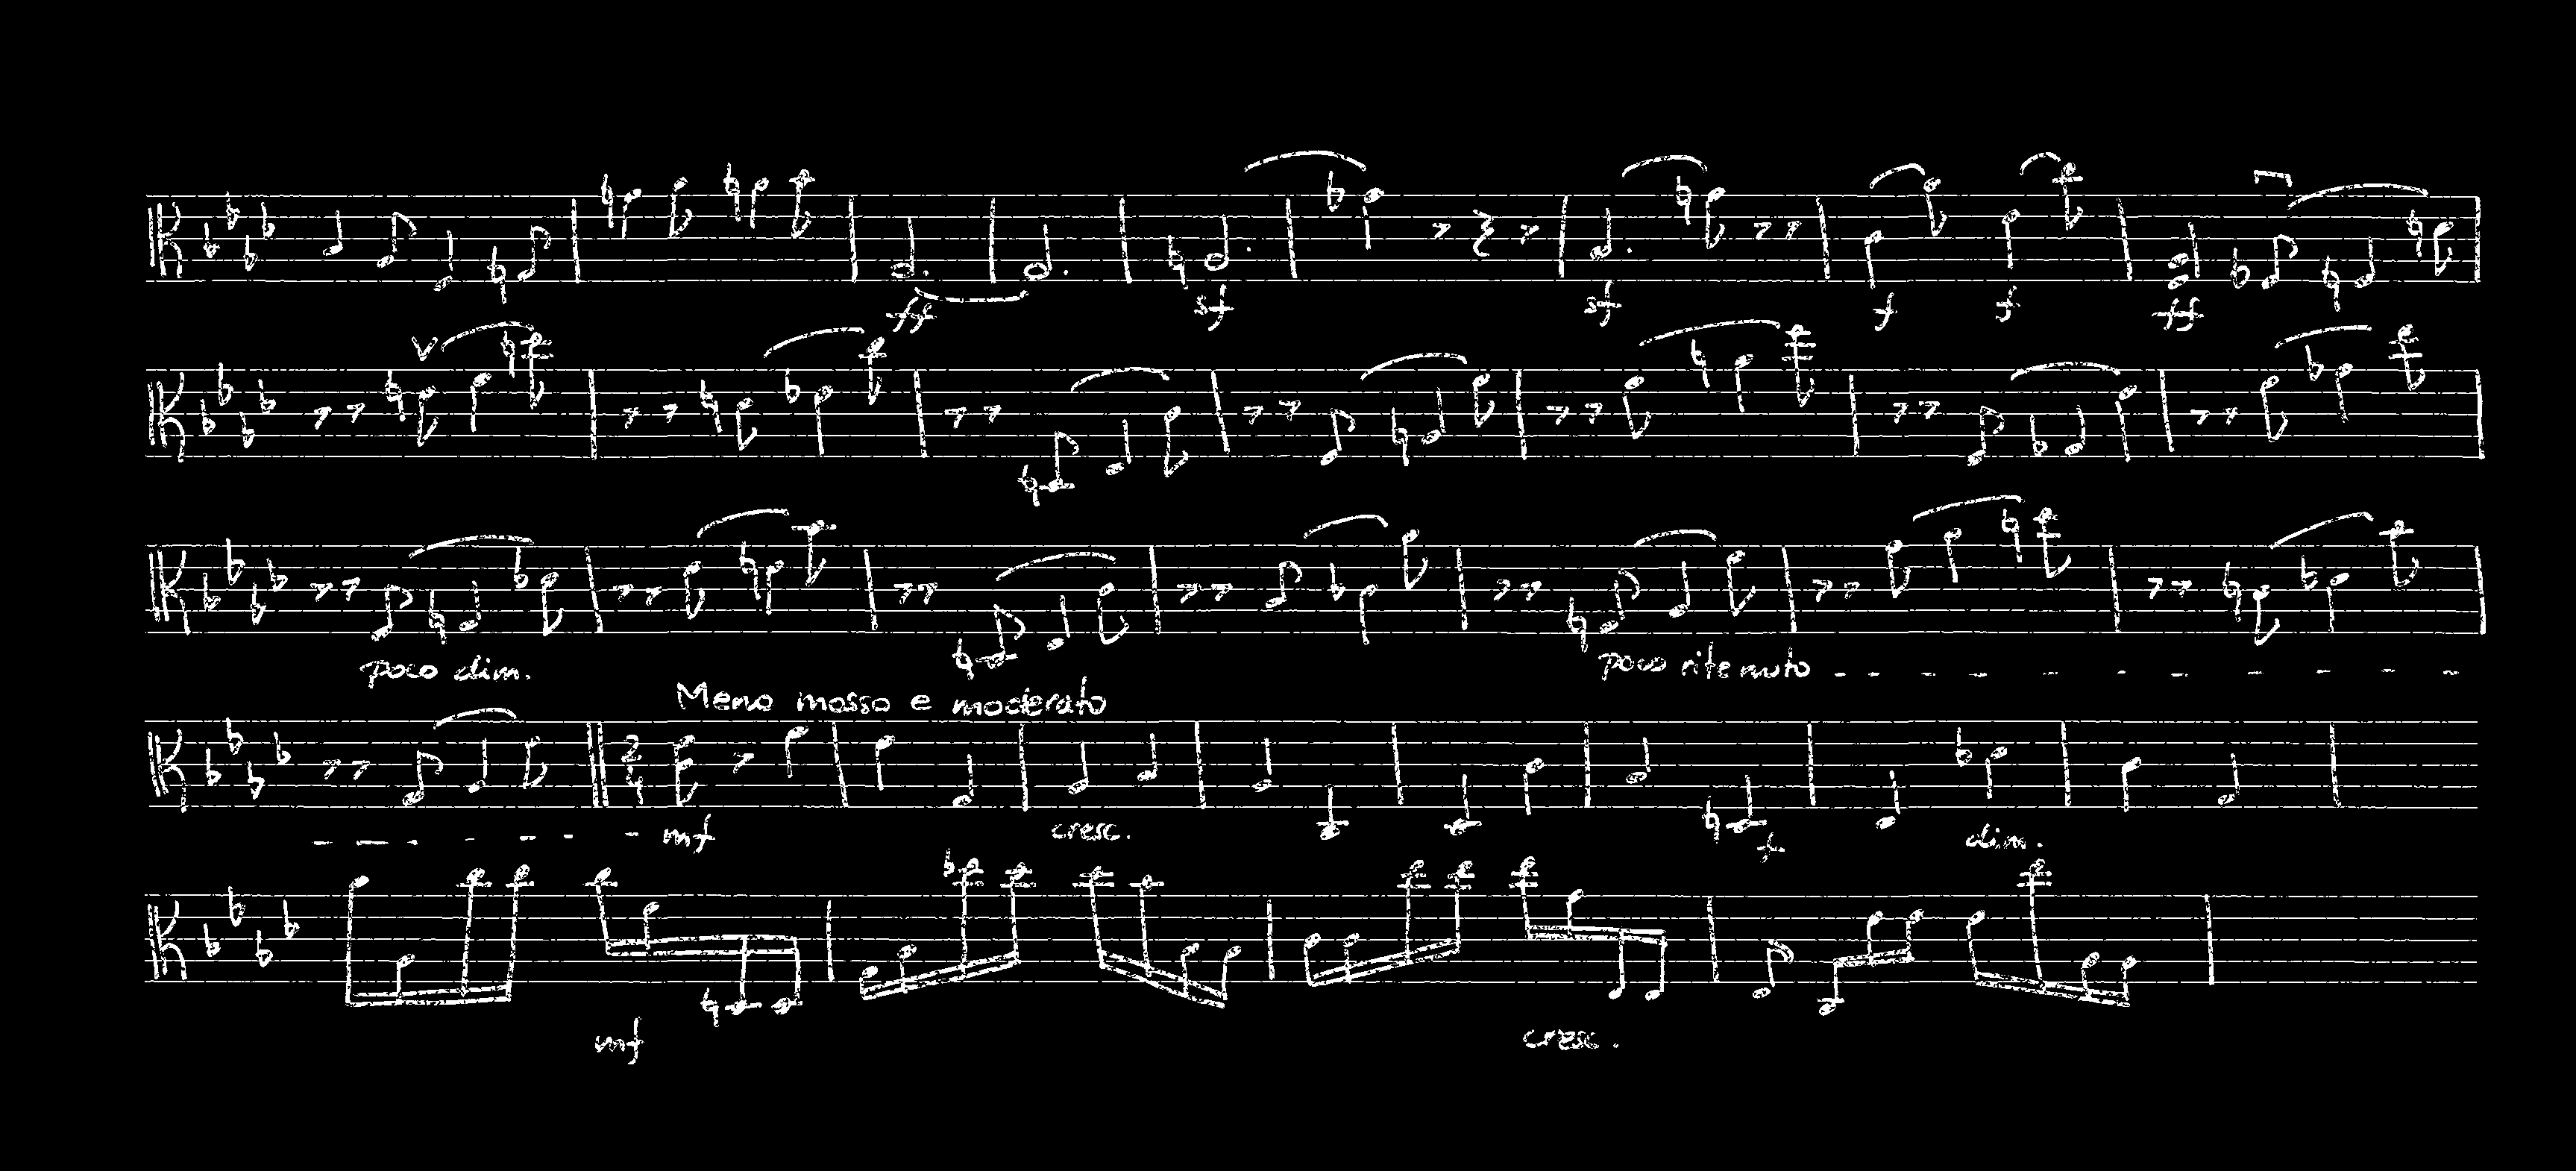 ff sf sf f f ff
poco dim. poco ritenuto
Meno mosso e moderato
2
4
mf cresc. f dim.
mf cresc.